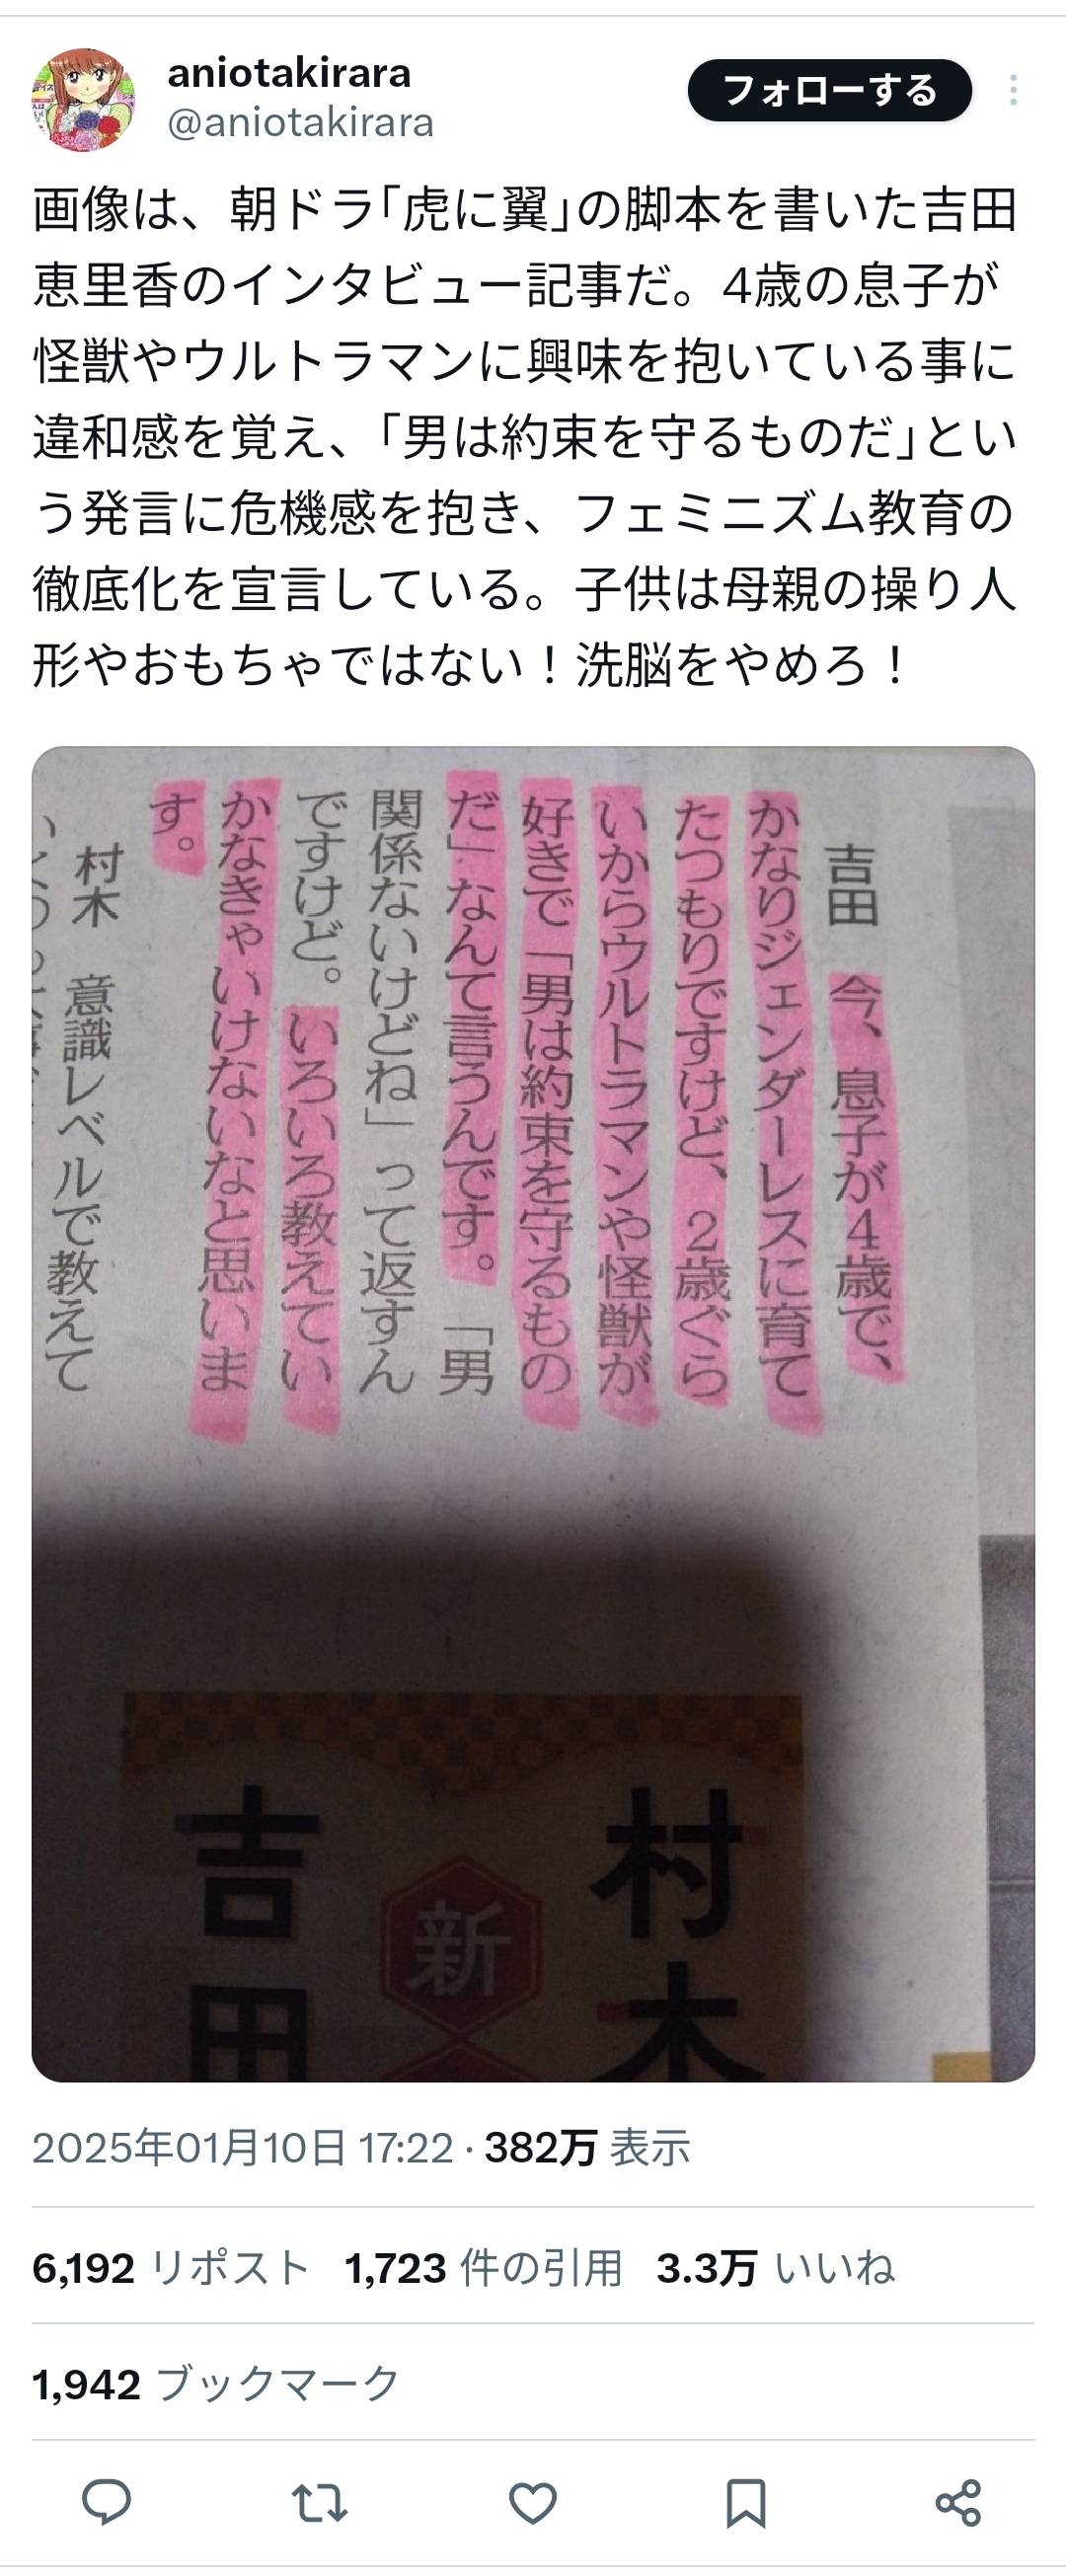 aniotakirara
@aniotakirara
フォローする
画像は、朝ドラ｢虎に翼｣の脚本を書いた吉田
恵里香のインタビュー記事だ。4歳の息子が
怪獣やウルトラマンに興味を抱いている事に
違和感を覚え、｢男は約束を守るものだ｣とい
う発言に危機感を抱き、フェミニズム教育の
徹底化を宣言している。子供は母親の操り人
形やおもちゃではない！洗脳をやめろ！
吉田　今、息子が4歳で、
かなりジェンダーレスに育て
たつもりですけど、2歳ぐら
いからウルトラマンや怪獣が
好きで「男は約束を守るもの
だ」なんて言うんです。「男
関係ないけどね」って返すん
ですけど。いろいろ教えてい
かなきゃいけないなと思いま
す。
村木　意識レベルで教えて
村木
新
吉田
2025年01月10日 17:22 · 382万 表示
6,192 リポスト 1,723 件の引用 3.3万 いいね
1,942 ブックマーク